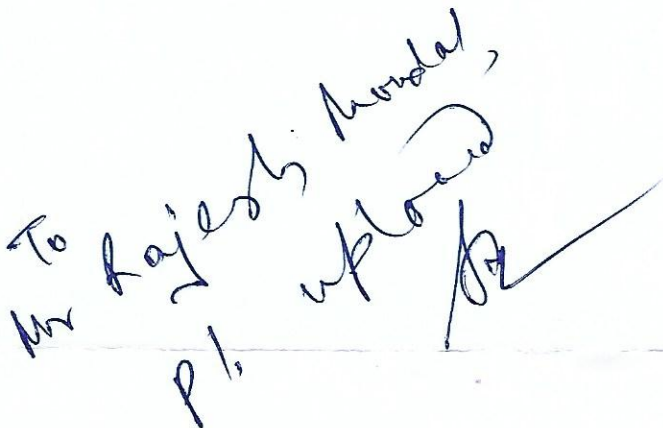 To
Mr Rajesh Mondal,
Pl. upload